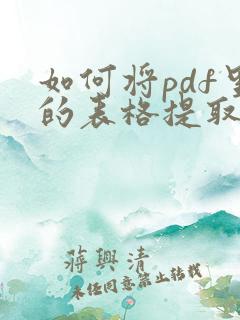 如何将pdf里
的表格提取
蒋興清
未经同意禁止转载